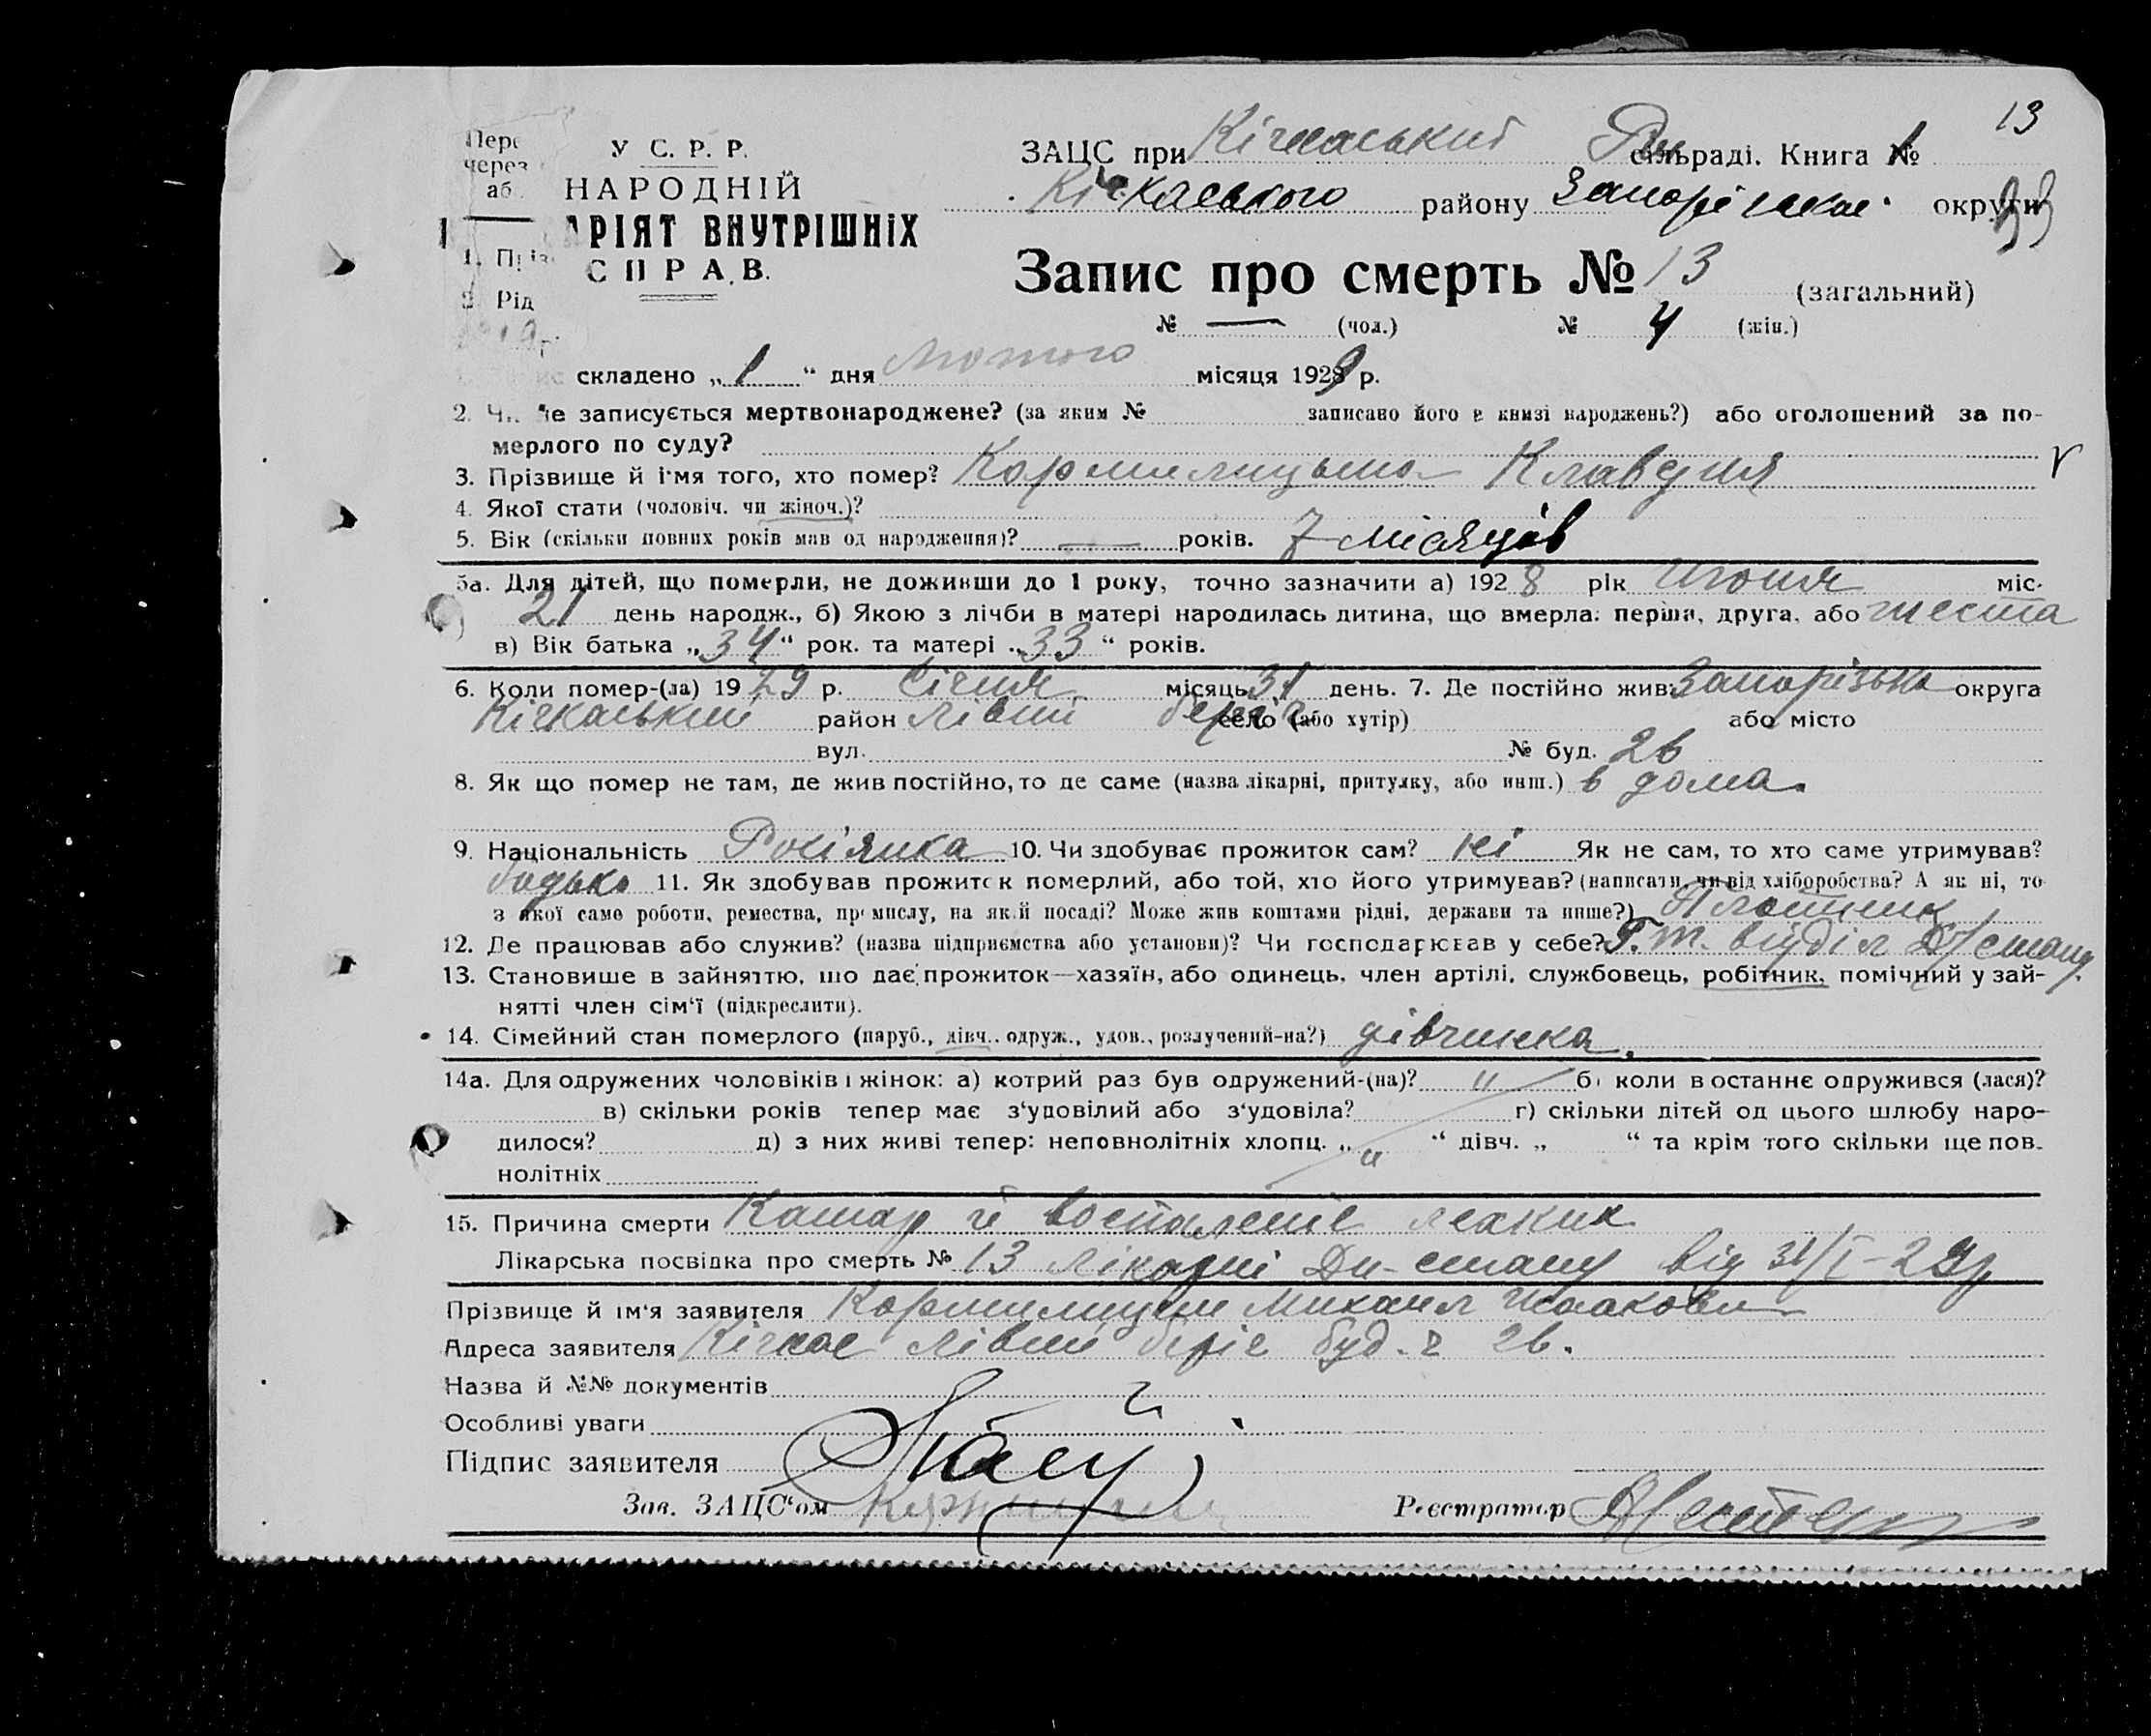 13
У С. Р. Р.
НАРОДНІЙ
РІЯТ ВНУТРІШНІХ
СПРАВ.
Пере
через
аб
1. Пріз
2. Рід
ЗАЦС при Кічкаський сільраді. Книга №
Кічкаського району Запоріжськ округи
Запис про смерть № 13 (загальний)
№ — (чол.) № 4 (жін.)
складено „1" дня лютого місяця 1929 р.
2. Чи не записується мертвонароджене? (за яким № записано його в книзі народжень?) або оголошений за по-
мерлого по суду?
3. Прізвище й ім'я того, хто помер? Кормилицына Клавдия V
4. Якої стати (чоловіч. чи жіноч.)?
5. Вік (скільки повних років мав од народження)? — років. 7 місяців
5а. Для дітей, що померли, не доживши до 1 року, точно зазначити а) 1928 рік Июня міс.
21 день народж., б) Якою з лічби в матері народилась дитина, що вмерла: перша, друга, або шеста
в) Вік батька „34" рок. та матері „33" років.
6. Коли помер-(ла) 1929 р. Січня місяць 31 день. 7. Де постійно жив: Запорізька округа
Кічкаський район лівий беріг село (або хутір) або місто
вул. № буд. 26
8. Як що помер не там, де жив постійно, то де саме (назва лікарні, притулку, або инш.) в дома.
9. Національність Росіянка 10. Чи здобуває прожиток сам? ні Як не сам, то хто саме утримував?
бадько 11. Як здобував прожиток померлий, або той, хто його утримував? (написати, чи від хліборобства? А як ні, то
з якої само роботи, ремества, промислу, на якій посаді? Може жив коштами рідні, держави та инше?) Плотник
12. Де працював або служив? (назва підприємства або установи)? Чи господарював у себе? Г. т. відділ Д/стану.
13. Становище в зайняттю, що дає прожиток—хазяїн, або одинець, член артілі, службовець, робітник, помічний у зай-
нятті член сім'ї (підкреслити).
14. Сімейний стан померлого (паруб., дівч., одруж., удов., розлучений-на?) дівчинка.
14а. Для одружених чоловіків і жінок: а) котрий раз був одружений-(на)? " б) коли в останнє одружився (лася)?
в) скільки років тепер має з'удовілий або з'удовіла? г) скільки дітей од цього шлюбу наро-
дилося? д) з них живі тепер: неповнолітніх хлопц. „ " дівч. „ " та крім того скільки ще пов-
нолітніх
15. Причина смерти Катар й воспаление легких
Лікарська посвідка про смерть № 13 лікарні Дн-стану від 31/I-29р
Прізвище й ім'я заявителя Кормилицын Михаил Исакович
Адреса заявителя Кічкас лівий беріг буд. ч 26.
Назва й №№ документів
Особливі уваги
Підпис заявителя
Зав. ЗАЦС'ом
Реєстратор